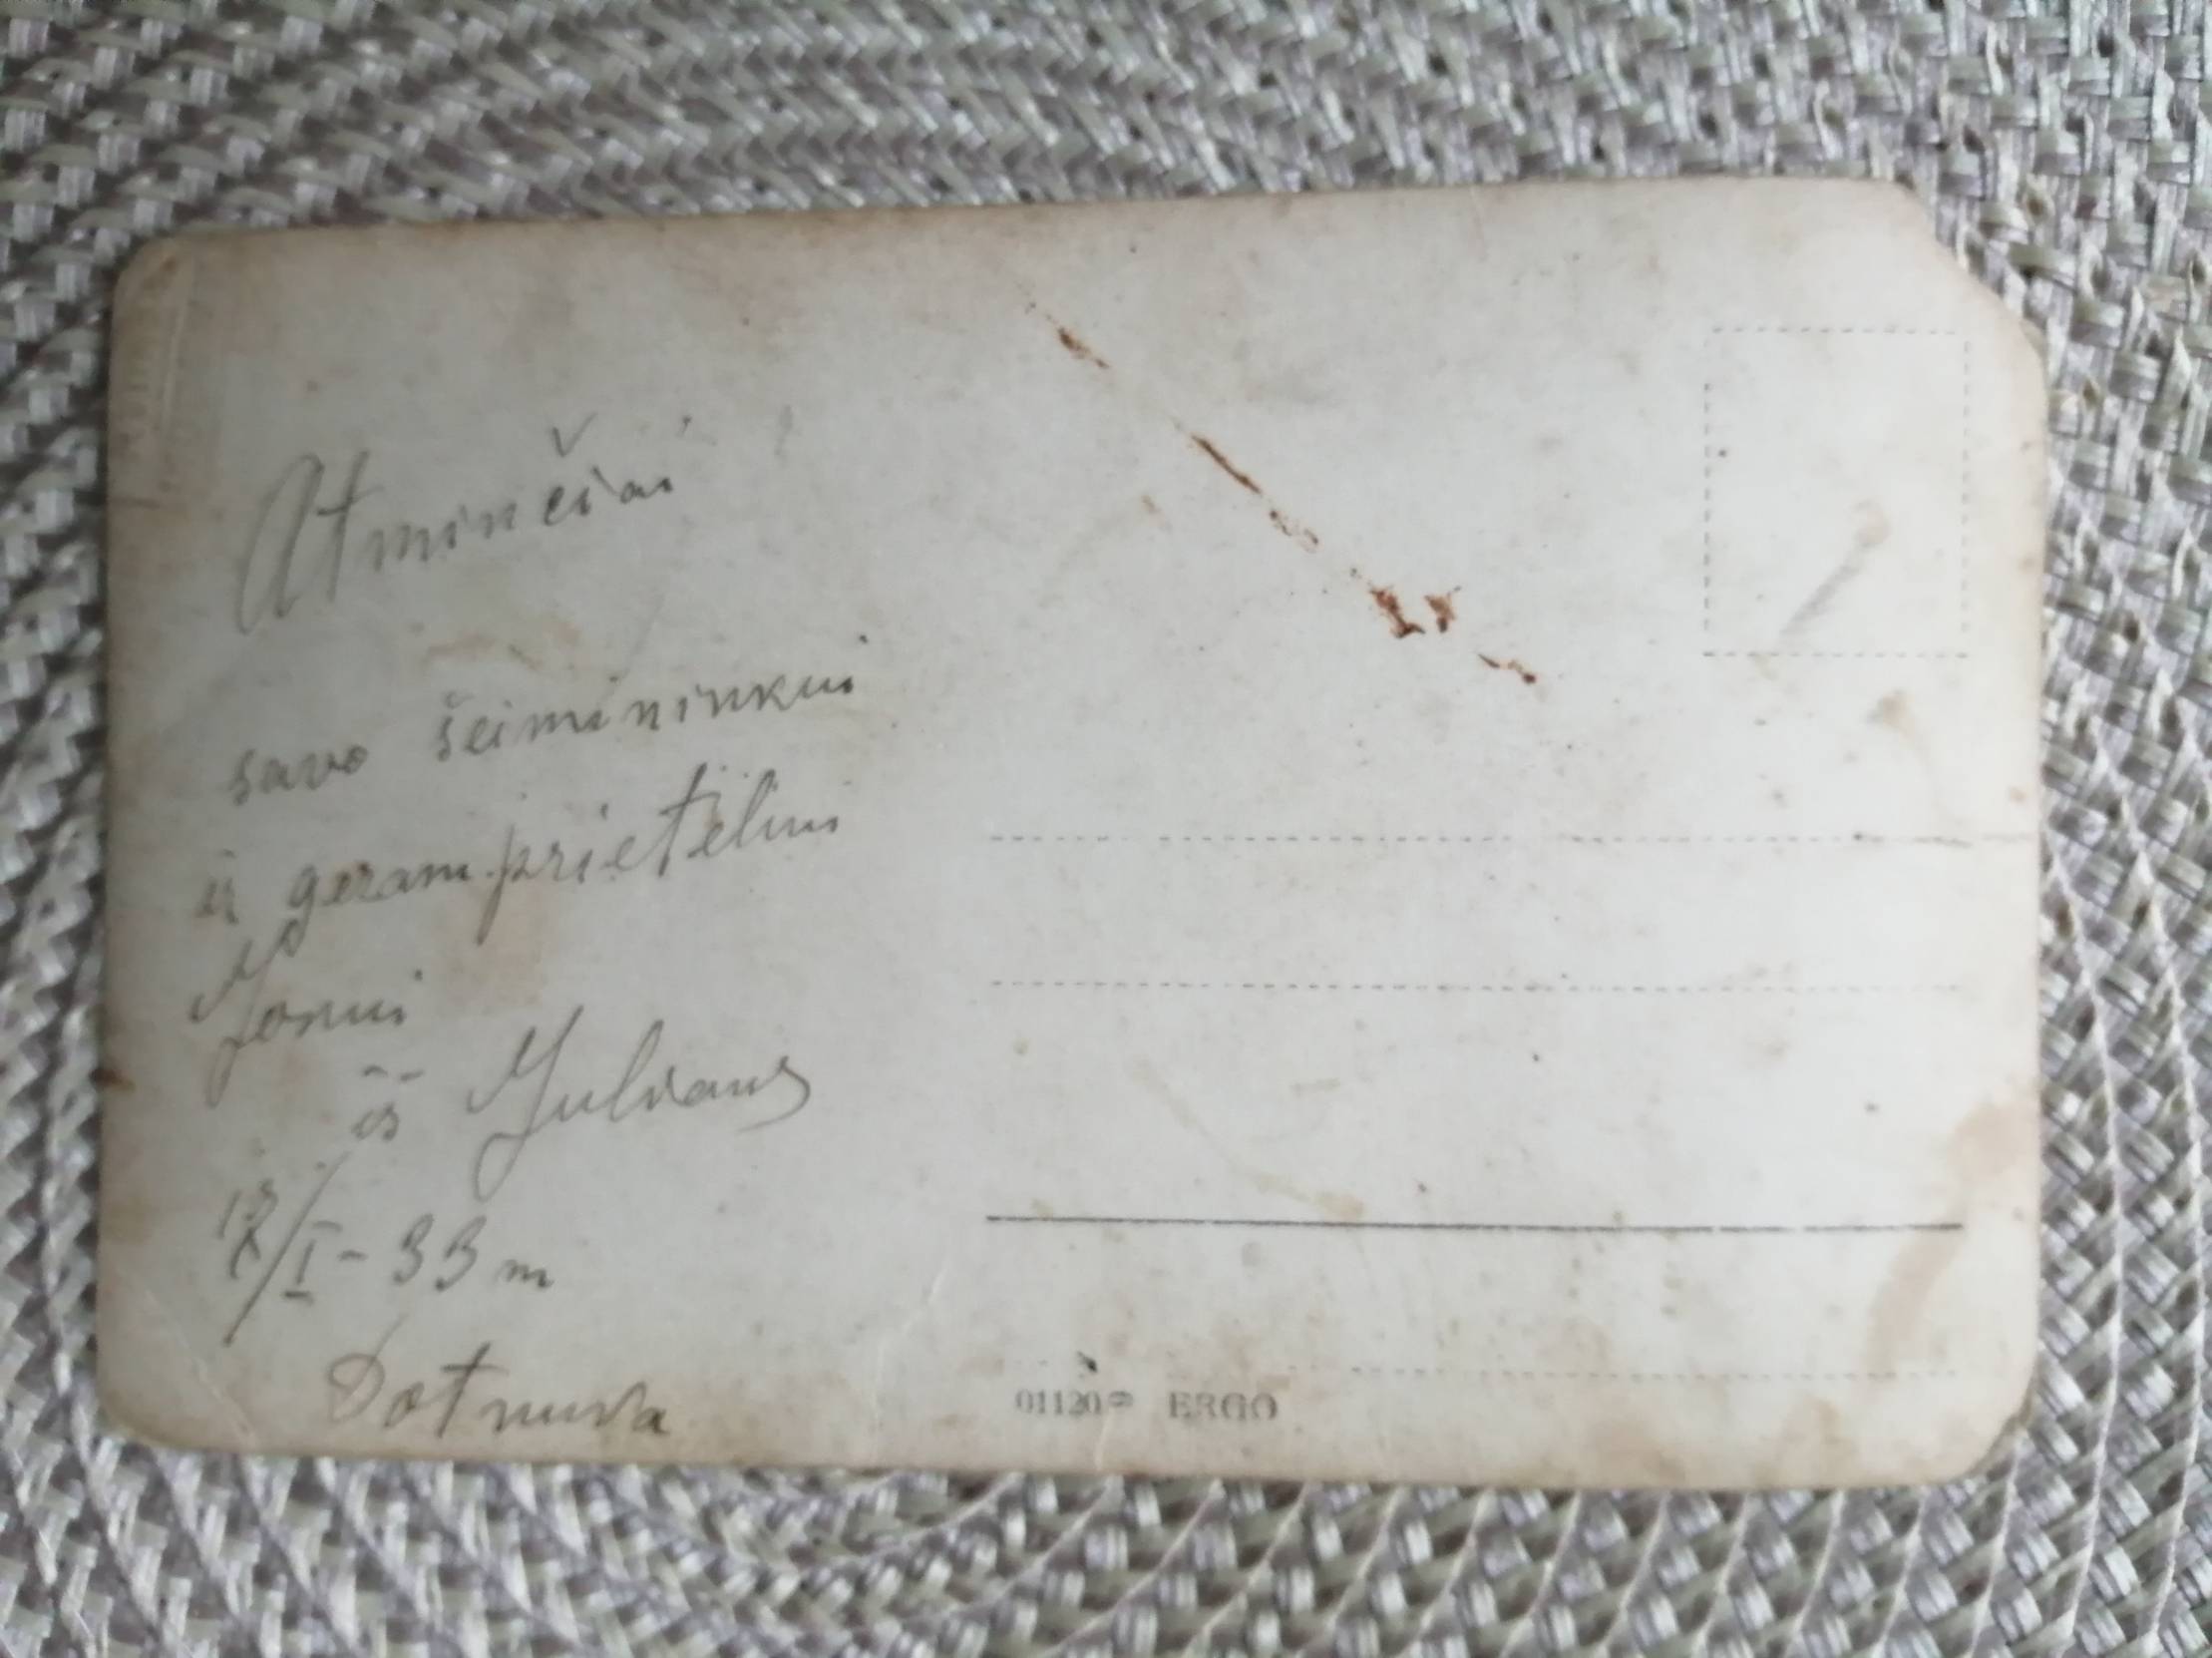 Atminčiai
savo šeimininkui
ir geram prieteliui
Jonui
iš Juliaus
/I - 33 m
Dotnuva
ERGO